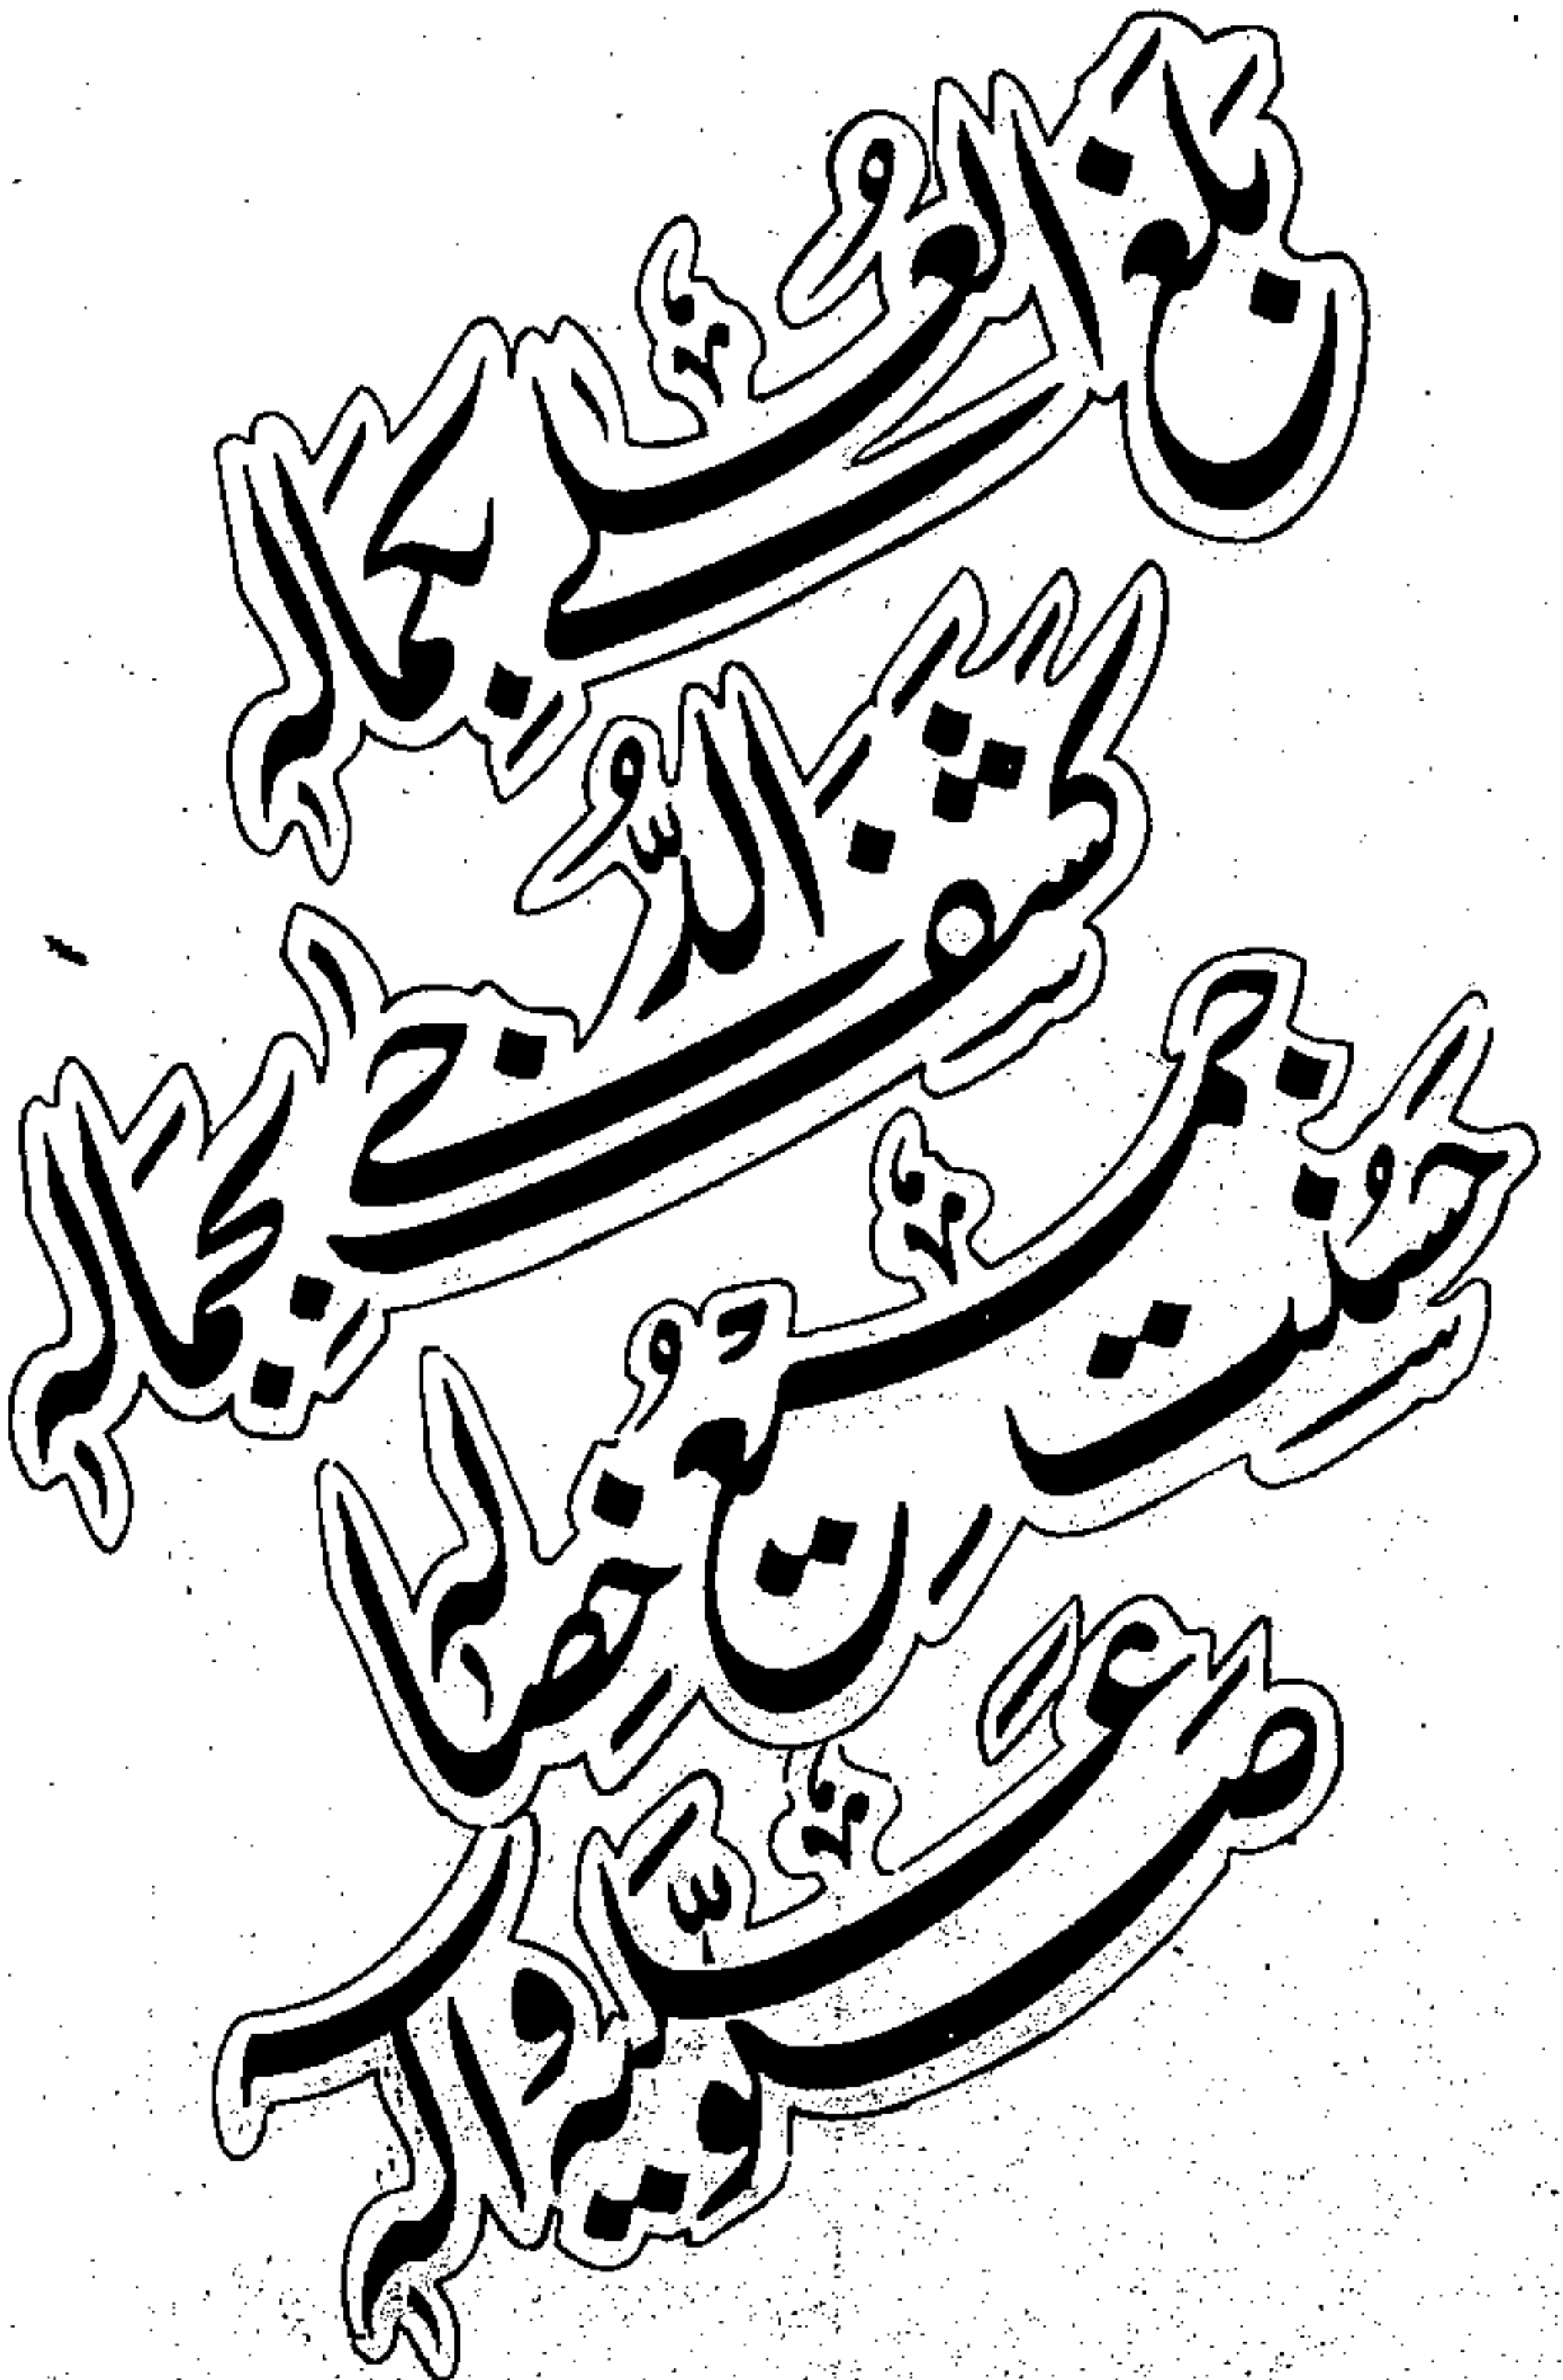 بَلَغَ الْعُلٰى بِكَمَالِهٖ
كَشَفَ الدُّجٰى بِجَمَالِهٖ
حَسُنَتْ جَمِيْعُ خِصَالِهٖ
صَلُّوْا عَلَيْهِ وَاٰلِهٖ